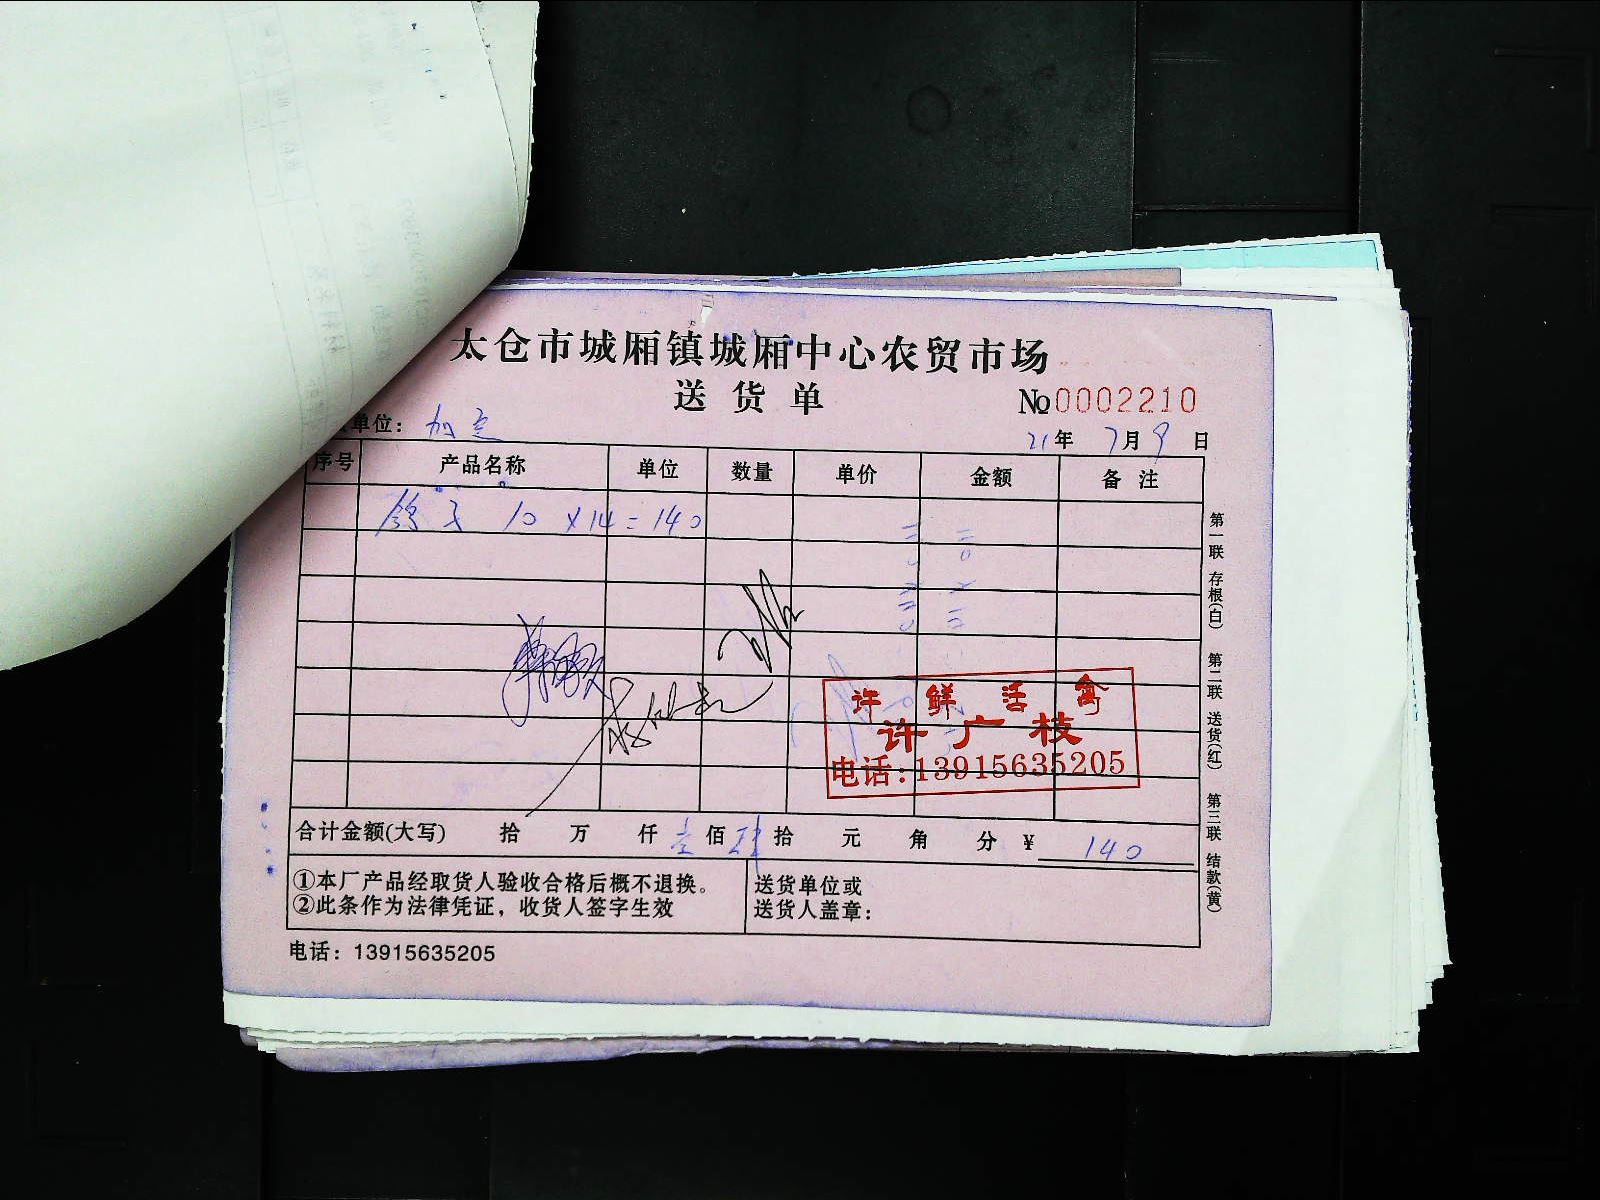 太仓市城厢镇城厢中心农贸市场
送货单
№0002210
单位：
21年7月9日
序号 产品名称 单位 数量 单价 金额 备注
鸽子 10 ×14=140
许鲜活禽
许广枝
电话:13915635205
合计金额(大写) 拾 万 仟 壹佰 肆拾 元 角 分 ¥ 140
①本厂产品经取货人验收合格后概不退换。
②此条作为法律凭证，收货人签字生效
送货单位或
送货人盖章：
电话：13915635205
第一联 存根(白) 第二联 送货(红) 第三联 结款(黄)